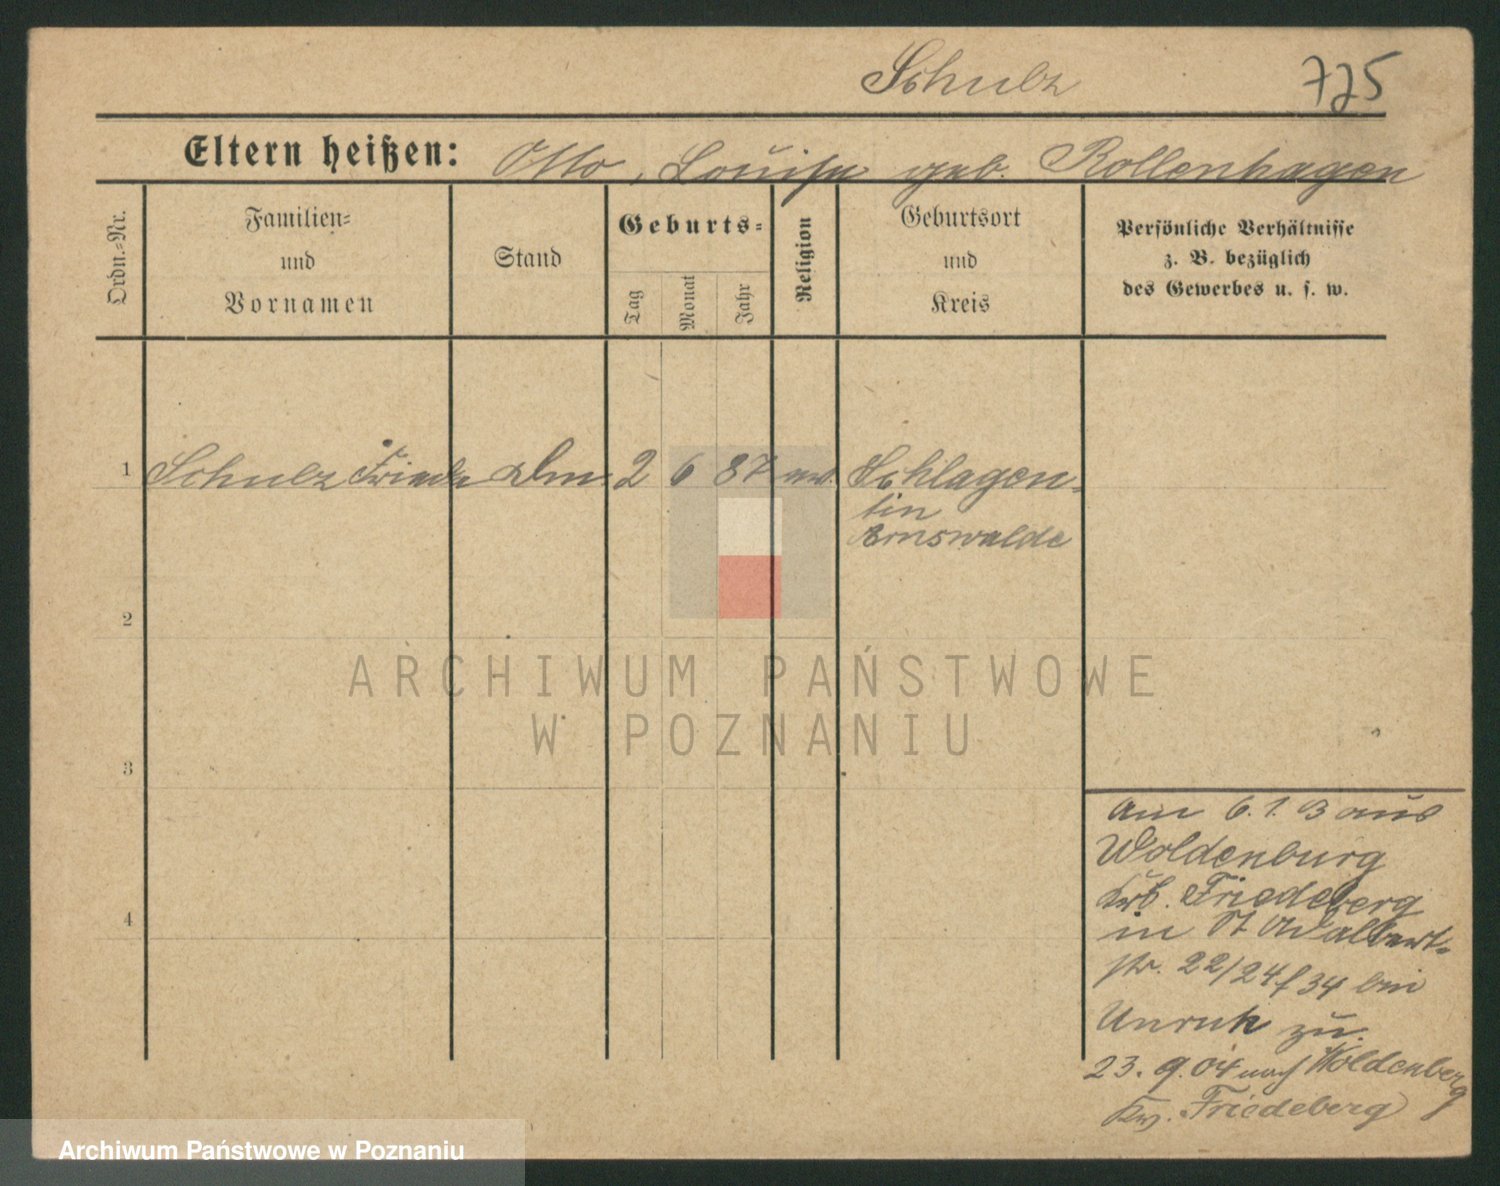 Schulz
775
Eltern heißen: Otto, Louise geb. Rollenhagen
Ordn.-Nr.
Familien-
und
Vornamen
Stand
Geburts-
Tag
Monat
Jahr
Religion
Geburtsort
und
Kreis
Persönliche Verhältnisse
z. B. bezüglich
des Gewerbes u. s. w.
1 Schulz Frieda Dm. 2 6 87 ev. Schlagen-
tin
Arnswalde
2
3
4
Am 6.1.3 aus
Woldenburg
Krs. Friedeberg
in St Adalbert-
str. 22/24 f 34 bei
Unruh zu.
23.9.04 nach Woldenberg
Kr. Friedeberg
ARCHIWUM PAŃSTWOWE
W POZNANIU
Archiwum Państwowe w Poznaniu